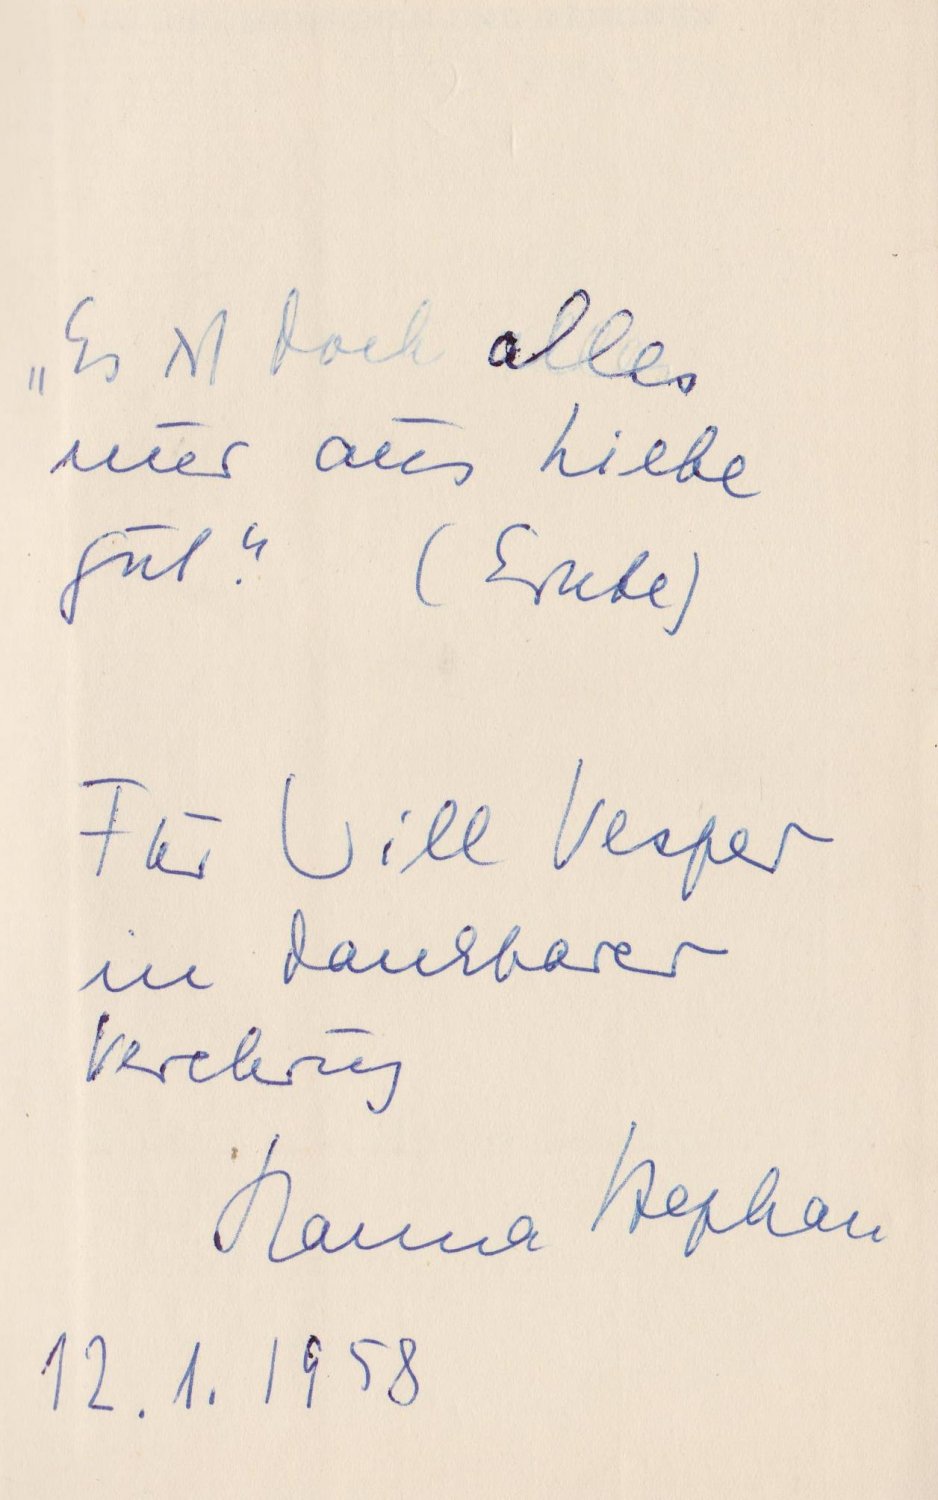 „Es ist doch alles
nur aus Liebe
gut.“ (Ernte)
Für Will Vesper
in dankbarer
Verehrung
Hanna Stephan
12.1.1958